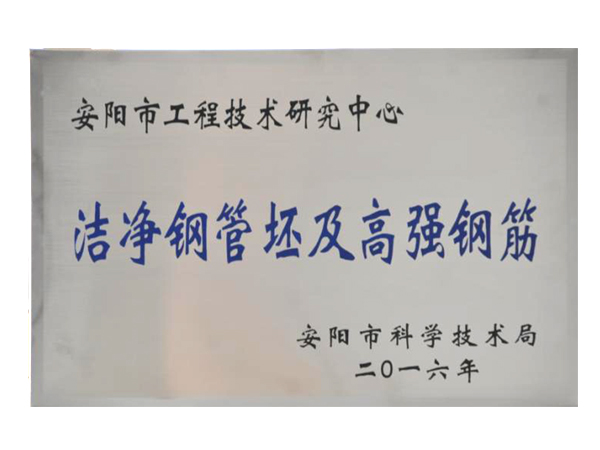 安阳市工程技术研究中心
洁净钢管坯及高强钢筋
安阳市科学技术局
二〇一六年